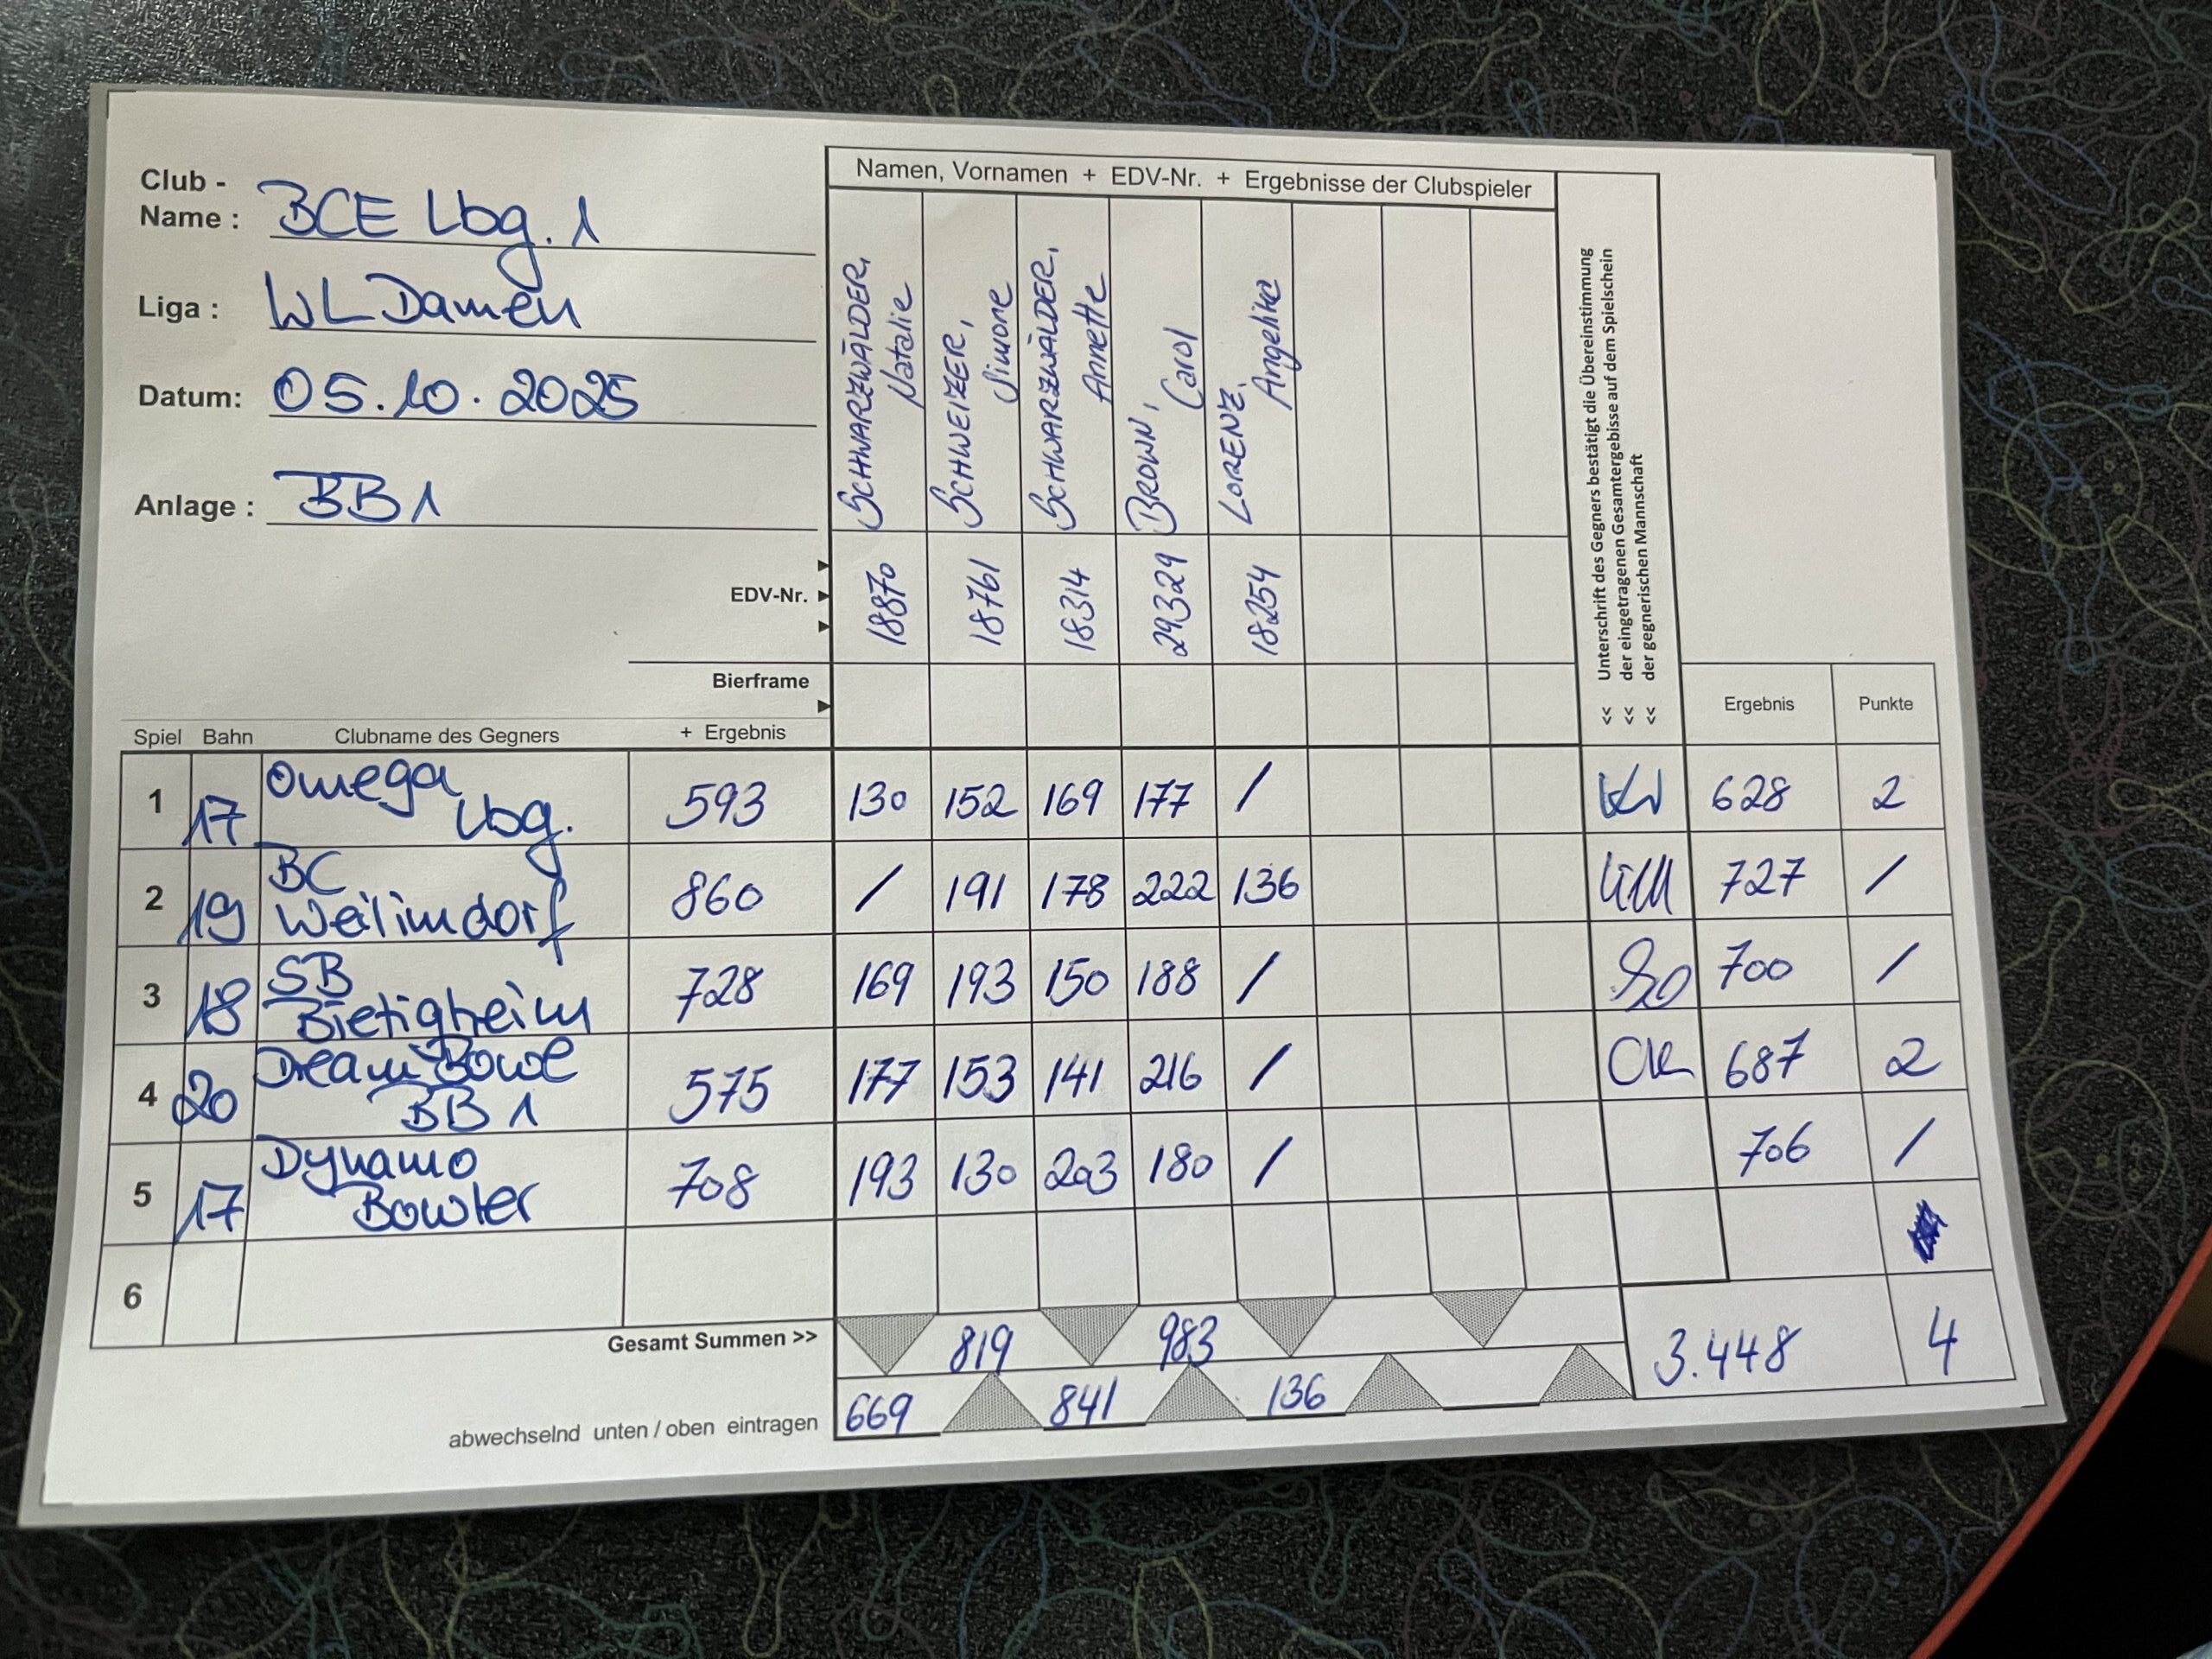 Club -
Name : BCE Lbg. 1
Liga : WL Damen
Datum: 05.10.2025
Anlage : BB1
Namen, Vornamen + EDV-Nr. + Ergebnisse der Clubspieler
SCHWARZWÄLDER, Natalie
SCHWEIZER, Simone
SCHWARZWÄLDER, Annette
BROWN, Carol
LORENZ, Angelika
Unterschrift des Gegners bestätigt die Übereinstimmung
der eingetragenen Gesamtergebisse auf dem Spielschein
der gegnerischen Mannschaft
<< << <<
EDV-Nr. 18870 18761 18314 29329 18254
Bierframe
Spiel Bahn Clubname des Gegners + Ergebnis Ergebnis Punkte
1 17 Omega Lbg. 593 130 152 169 177 / 628 2
2 19 BC Weilimdorf 860 / 191 178 222 136 727 /
3 18 SB Bietigheim 728 169 193 150 188 / 700 /
4 20 Dream-Bowl BB 1 575 177 153 141 216 / 687 2
5 17 Dynamo Bowler 708 193 130 203 180 / 706 /
6
Gesamt Summen >> 819 983 3.448 4
abwechselnd unten / oben eintragen 669 841 136